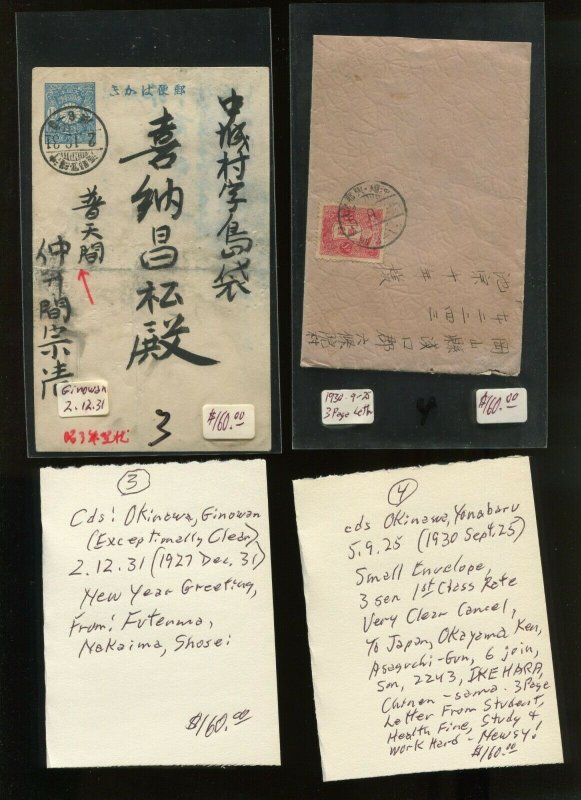 郵便はかき
中城村字島袋
喜納昌松殿
普天間
仲井間宗清
2.12.31
Ginowan
2.12.31
$160.00
3
1930-9-25
3 Page Letter
4
$160.00
岡山縣浅口郡六條院村
二二四三
池原
③
Cds: Okinawa, Ginowan
(Exceptimally Clear)
2.12.31 (1927 Dec. 31)
New Year Greeting,
From: Futenma,
Nakaima, Shosei
$160.00
④
cds Okinawa, Yonabaru
5.9.25 (1930 Sept. 25)
Small Envelope,
3 sen 1st Class Rate
Very Clear Cancel,
To Japan, Okayama Ken,
Asaguchi-Gun, 6 join,
Son, 2243, IKEHARA,
Chinen-sama. 3 Page
Letter From Student,
Health Fine, Study &
Work Hard - Newsy!
$160.00